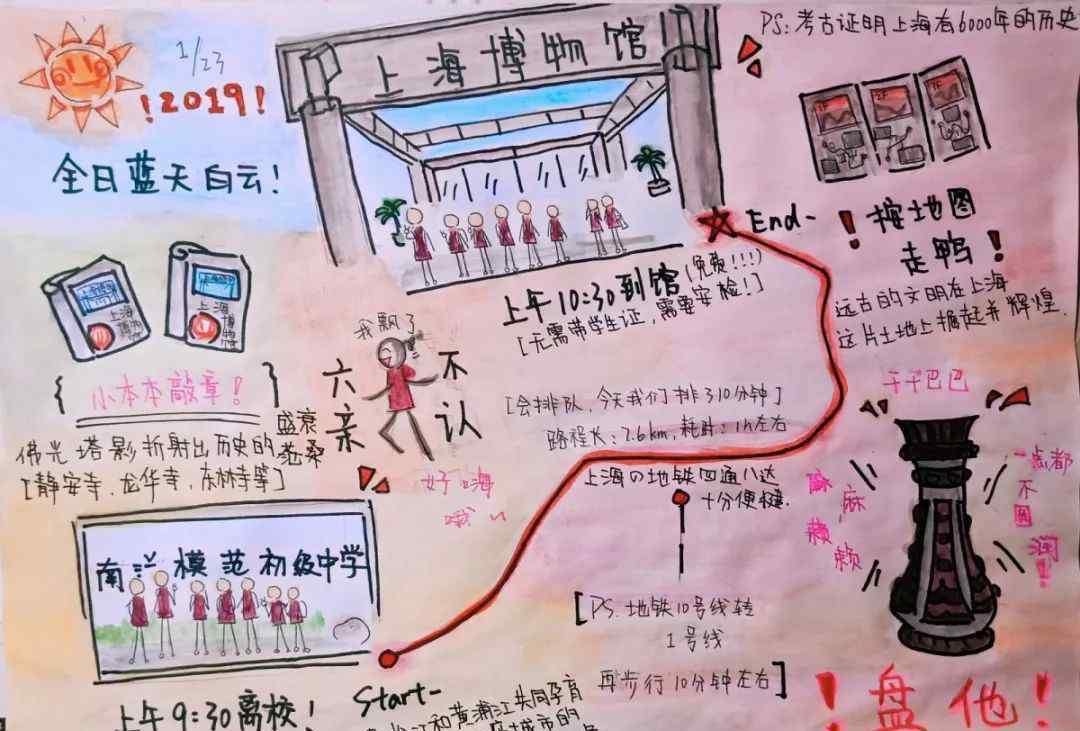 PS:考古证明上海有6000年的历史
1/23
!2019!
全日蓝天白云!
上海博物馆
End-
!按地图
走鸭!
远古的文明在上海
这片土地上掘起并辉煌.
上午10:30到馆(免费!!!)
[无需带学生证,需要安检!]
上海博物馆
上海博物馆
{小本本敲章!}
佛光塔影折射出历史的盛衰沧桑
[静安寺,龙华寺,东林寺等]
我飘了
六亲
不认
好嗨
哦~
[会排队,今天我们排了10分钟]
路程长:7.6km,耗时:1h左右
上海の地铁四通八达
十分便捷.
干干巴巴
麻麻
赖赖
一点都
不圆
润!
南洋模范初级中学
[PS:地铁10号线转
1号线
再步行10分钟左右]
Start-
上午9:30离校!
江和黄浦江共同孕育
城市的
!盘他!